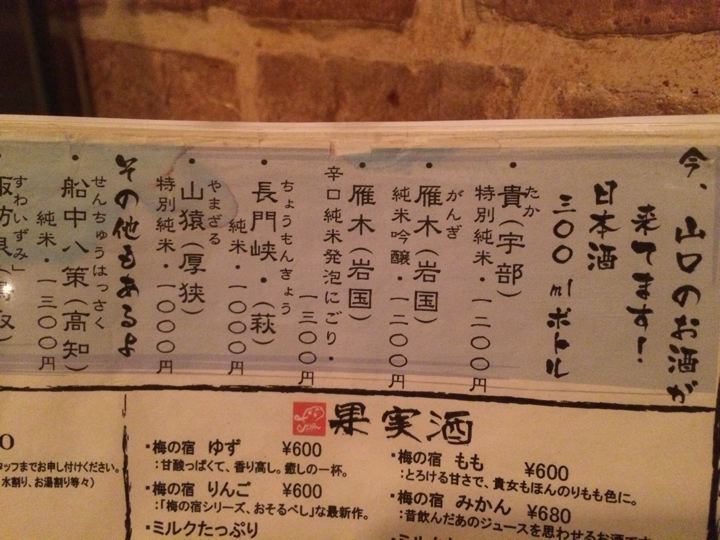 今、山口のお酒が
来てます！
日本酒
三〇〇mlボトル
たか
・貴（宇部）
特別純米・一二〇〇円
がんぎ
・雁木（岩国）
純米吟醸・一二〇〇円
・雁木（岩国）
辛口純米発泡にごり・
一三〇〇円
ちょうもんきょう
・長門峡・（萩）
純米・一〇〇〇円
やまざる
・山猿（厚狭）
特別純米・一〇〇〇円
その他もあるよ
せんちゅうはっさく
・船中八策（高知）
純米・一三〇〇円
すわいずみ」
果実酒
・梅の宿 ゆず ¥600
：甘酸っぱくて、香り高し。癒しの一杯。
・梅の宿 りんご ¥600
：「梅の宿シリーズ、おそるべし」な最新作。
・ミルクたっぷり
・梅の宿 もも ¥600
：とろける甘さで、貴女もほんのりもも色に。
・梅の宿 みかん ¥680
：昔飲んだあのジュースを思わせるお酒です
タッフまでお申し付けください。
水割り、お湯割り等々）